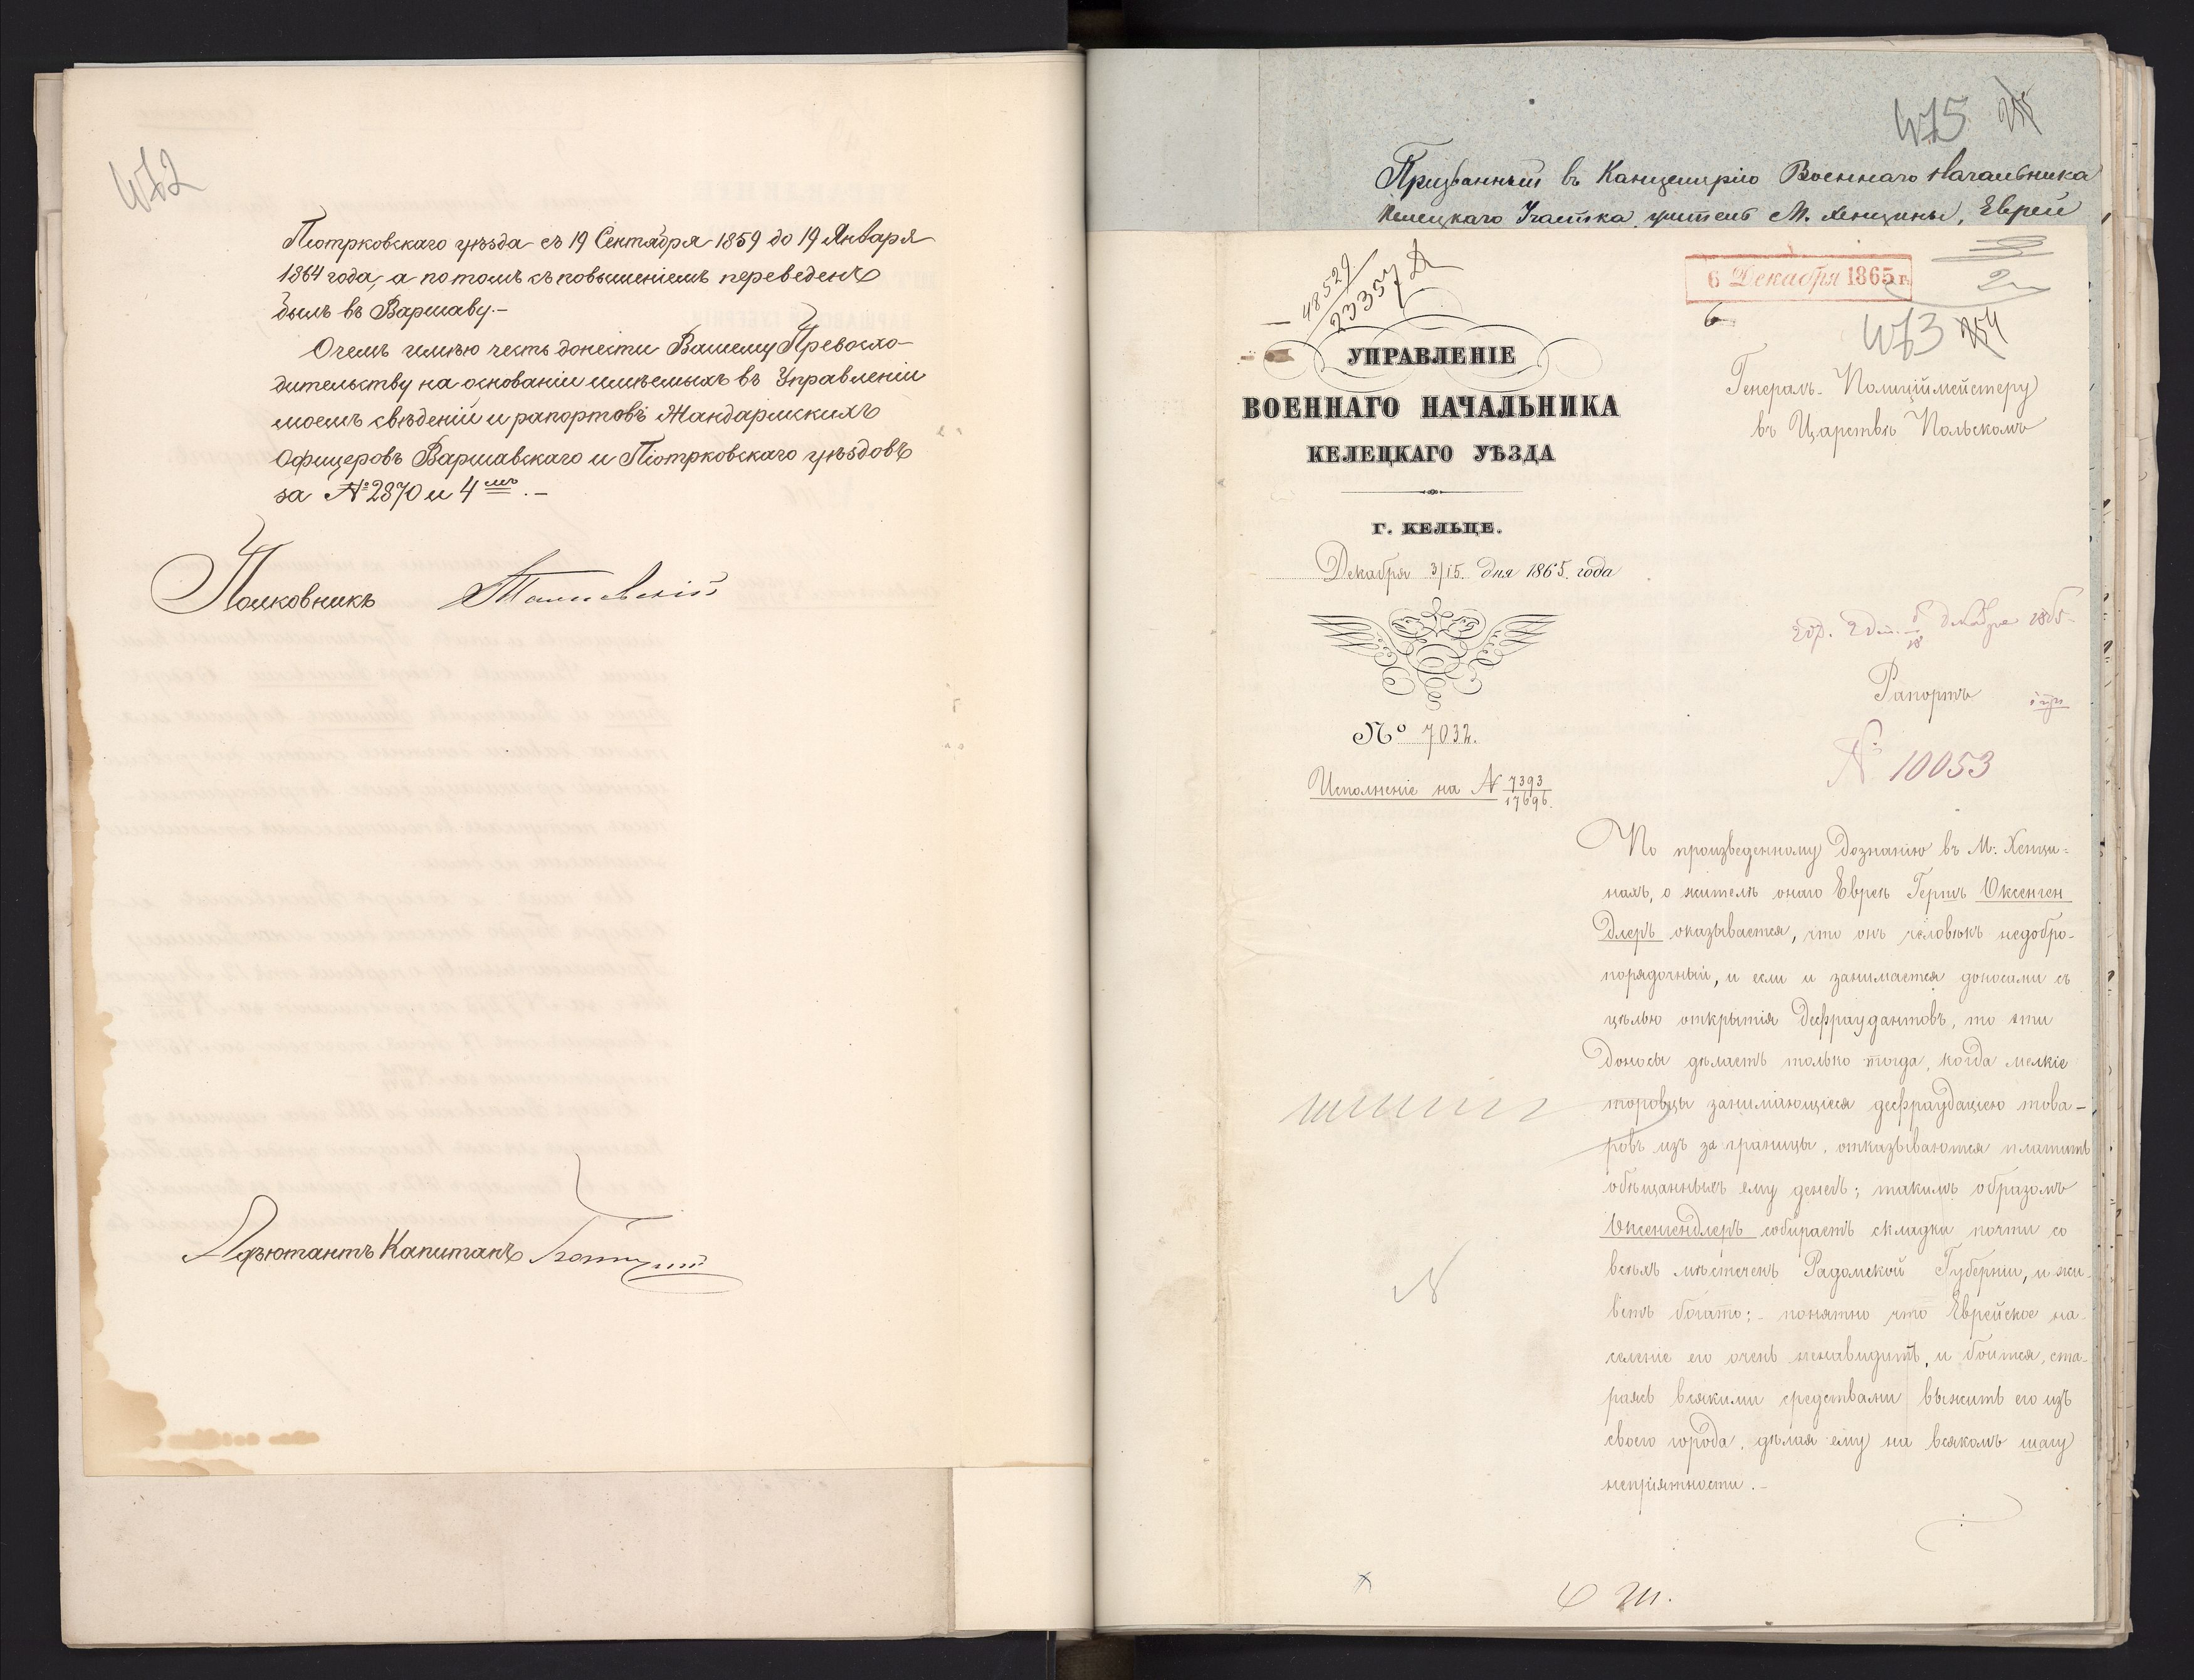 472
Піотрковскаго уѣзда съ 19 Сентября 1859 до 19 Января
1864 года, а потомъ съ повышеніемъ переведенъ
былъ въ Варшаву.-
О чемъ имѣю честь донести Вашему Превосхо-
дительству на основаніи имѣемыхъ въ Управленіи
моемъ свѣденій и рапортовъ Жандармскихъ
Офицеровъ Варшавскаго и Піотрковскаго уѣздовъ
за № 2870 и 4мъ.-
Полковникъ
Адъютантъ Капитанъ
475
Призванный въ Канцелярію Военнаго Начальника
Келецкаго Участка, житель М. Хенцины, Еврей
48529
23357
6 Декабря 1865 г.
6
2
473 254
УПРАВЛЕНІЕ
ВОЕННАГО НАЧАЛЬНИКА
КЕЛЕЦКАГО УѢЗДА
Г. КЕЛЬЦЕ.
Декабря 3/15 дня 1865 года
№ 7032.
Исполненіе на № 7393/17696.
Генералъ-Полицiймейстеру
въ Царствѣ Польскомъ
6/18 Декабря 1865
Рапортъ
№ 10053
По произведенному дознанію въ М. Хенци-
нахъ, о жителѣ онаго Евреѣ Гершъ Оксенген
длеръ оказывается, что онъ человѣкъ недобро-
порядочный, и если и занимается доносами съ
цѣлью открытія дефраудантовъ, то эти
доносы дѣлаетъ только тогда, когда мелкіе
торовцы занимающіеся дефраудаціею това-
ровъ изъ за границы, отказываются платить
обѣщанныхъ ему денегъ; такимъ образомъ
Оксенгендлеръ собираетъ складки почти со
всѣхъ мѣстечекъ Радомской Губерніи, и жи-
ветъ богато;- понятно что Еврейское на-
селеніе его очень ненавидитъ, и боится, ста-
раясь всякими средствами выжить его изъ
своего города, дѣлая ему на всякомъ шагу
непріятности.-